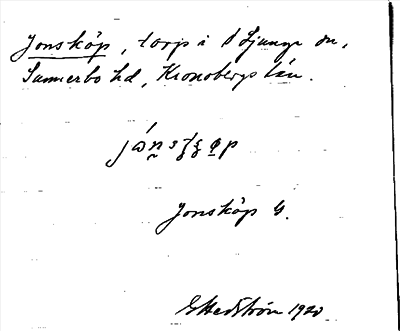 Jonsköp, torp i S Ljunga sn,
Sunnerbo hd, Kronobergs län.
Jonsköp G.
G Hedström 1920